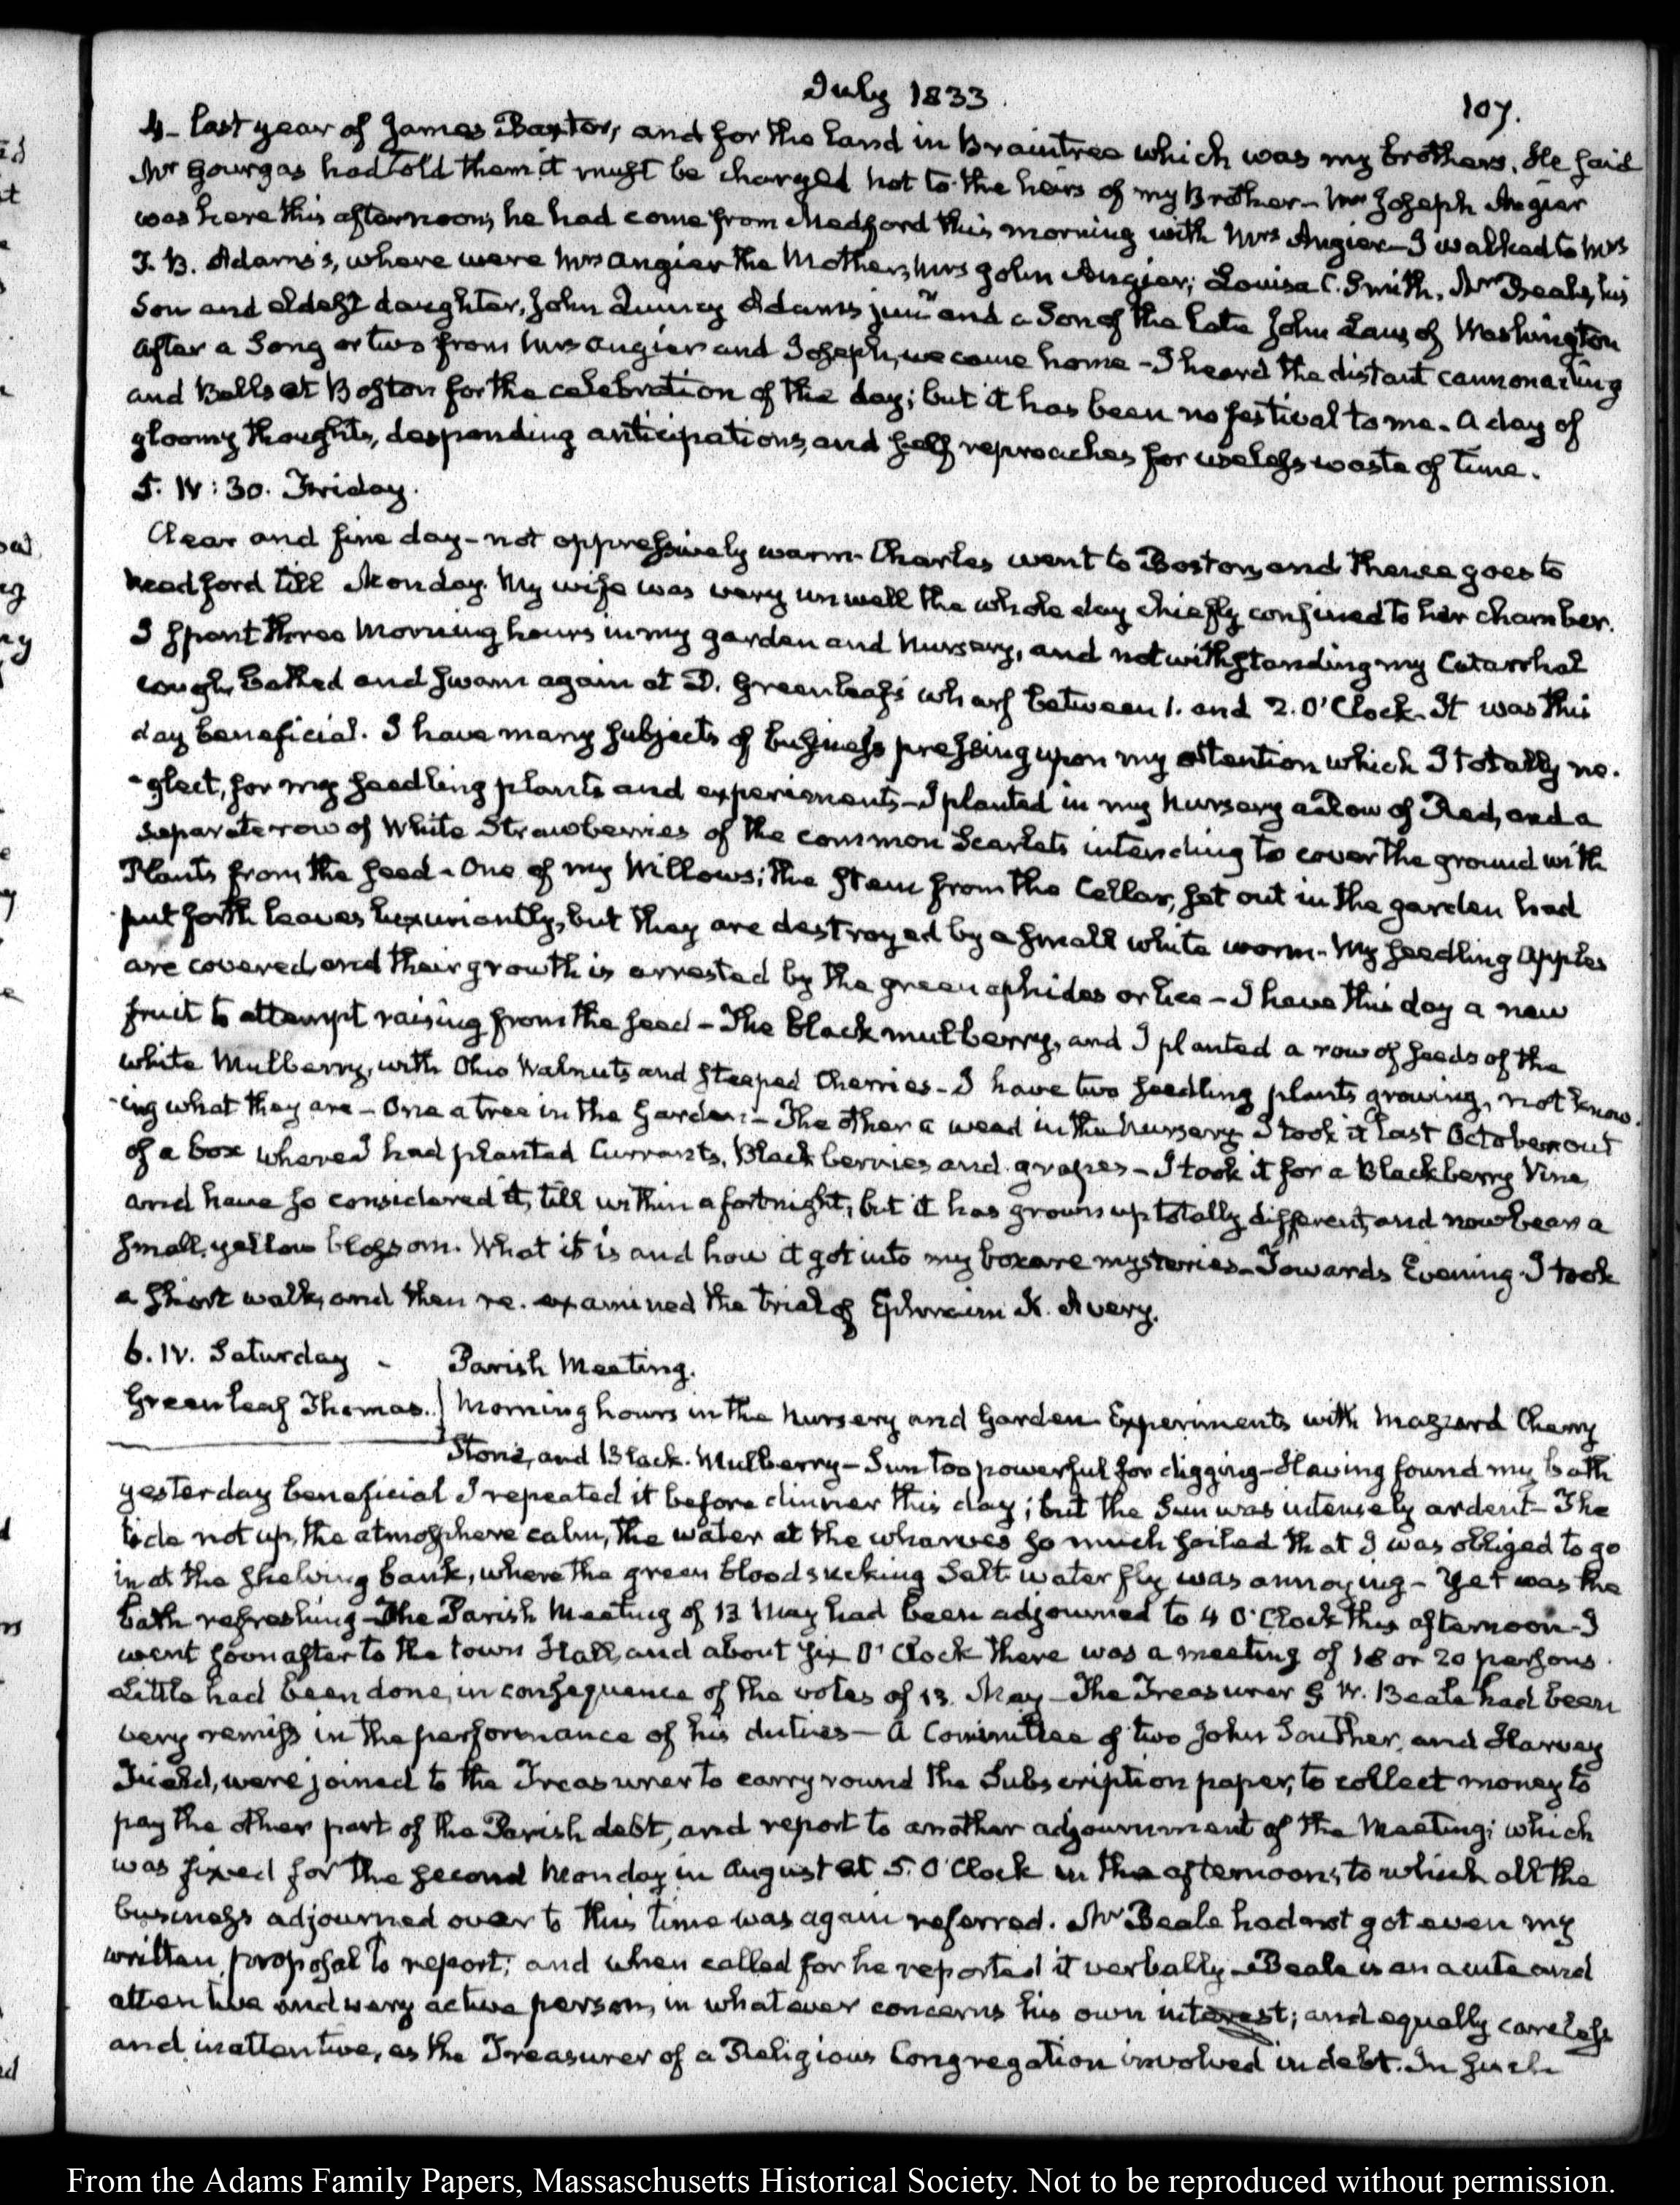 July 1833.
107.
4- last year of James Baxter, and for the land in Braintree which was my brothers. He said
Mr Gourgas had told them it must be charged not to the heirs of my Brother - Mr Joseph Angier
was here this afternoon, he had come from Medford this morning with Mrs Angier - I walked to Mrs
T. B. Adams's, where were Mrs Angier the Mother, Mrs John Angier; Louisa C. Smith, Mr Beale, his
Son and eldest daughter, John Quincy Adams junr and a Son of the late John Law, of Washington
After a Song or two from Mrs Angier and Joseph, we came home - I heard the distant cannonading
and Bells at Boston for the celebration of the day; but it has been no festival to me. A day of
gloomy thoughts, desponding anticipations, and self reproaches for useless waste of time.
5. IV:30. Friday.
Clear and fine day - not oppressively warm. Charles went to Boston, and thence goes to
Medford till Monday. My wife was very unwell the whole day chiefly confined to her chamber.
I spent three Morning hours in my garden and Nursery, and notwithstanding my Catarrhal
cough, bathed and swam again at D. Greenleaf's wharf between 1. and 2. O'Clock. It was this
day beneficial. I have many subjects of business pressing upon my attention which I totally ne-
-glect, for my seedling plants and experiments - I planted in my Nursery a Row of Red, and a
separate row of White Strawberries of the common Scarlets intending to cover the ground with
Plants from the seed - One of my Willows; the stem from the Cellar, set out in the garden had
put forth leaves luxuriantly, but they are destroyed by a small white worm - My seedling Apples
are covered, and their growth is arrested by the green aphides or lice - I have this day a new
fruit to attempt raising from the seed - The black mulberry, and I planted a row of seeds of the
white Mulberry, with Ohio Walnuts and steeped Cherries - I have two seedling plants growing, not know-
-ing what they are - One a tree in the Garden - The other a weed in the Nursery I took it last October out
of a box where I had planted Currants, Blackberries and grapes - I took it for a Blackberry Vine
and have so considered it, till within a fortnight; but it has grown up totally different, and now bears a
small, yellow blossom. What it is and how it got into my box are mysteries - Towards Evening I took
a short walk, and then re-examined the trial of Ephraim K. Avery.
6. IV. Saturday - Parish Meeting.
Greenleaf Thomas. Morning hours in the Nursery and Garden. Experiments with Mazzard Cherry
Stone, and Black Mulberry - Sun too powerful for digging - Having found my bath
yesterday beneficial I repeated it before dinner this day; but the Sun was intensely ardent - The
tide not up, the atmosphere calm, the water at the wharves so much soiled that I was obliged to go
in at the shelving bank, where the green bloodsucking Salt water fly was annoying - Yet was the
bath refreshing - The Parish Meeting of 13 May had been adjourned to 4 O'Clock this afternoon - I
went soon after to the town Hall, and about six O'Clock there was a meeting of 18 or 20 persons.
Little had been done, in consequence of the votes of 13. May - The Treasurer G W. Beale had been
very remiss in the performance of his duties - A Committee of two John Souther, and Harvey
Field, were joined to the Treasurer to carry round the Subscription paper, to collect money to
pay the other part of the Parish debt, and report to another adjournment of the Meeting; which
was fixed for the second Monday in August at 5. O'Clock in the afternoon; to which all the
business adjourned over to this time was again referred. Mr Beale had not got even my
written proposal to report; and when called for he reported it verbally - Beale is an acute and
attentive and very active person, in whatever concerns his own interest; and equally careless
and inattentive, as the Treasurer of a Religious Congregation involved in debt. In such
From the Adams Family Papers, Massachusetts Historical Society. Not to be reproduced without permission.